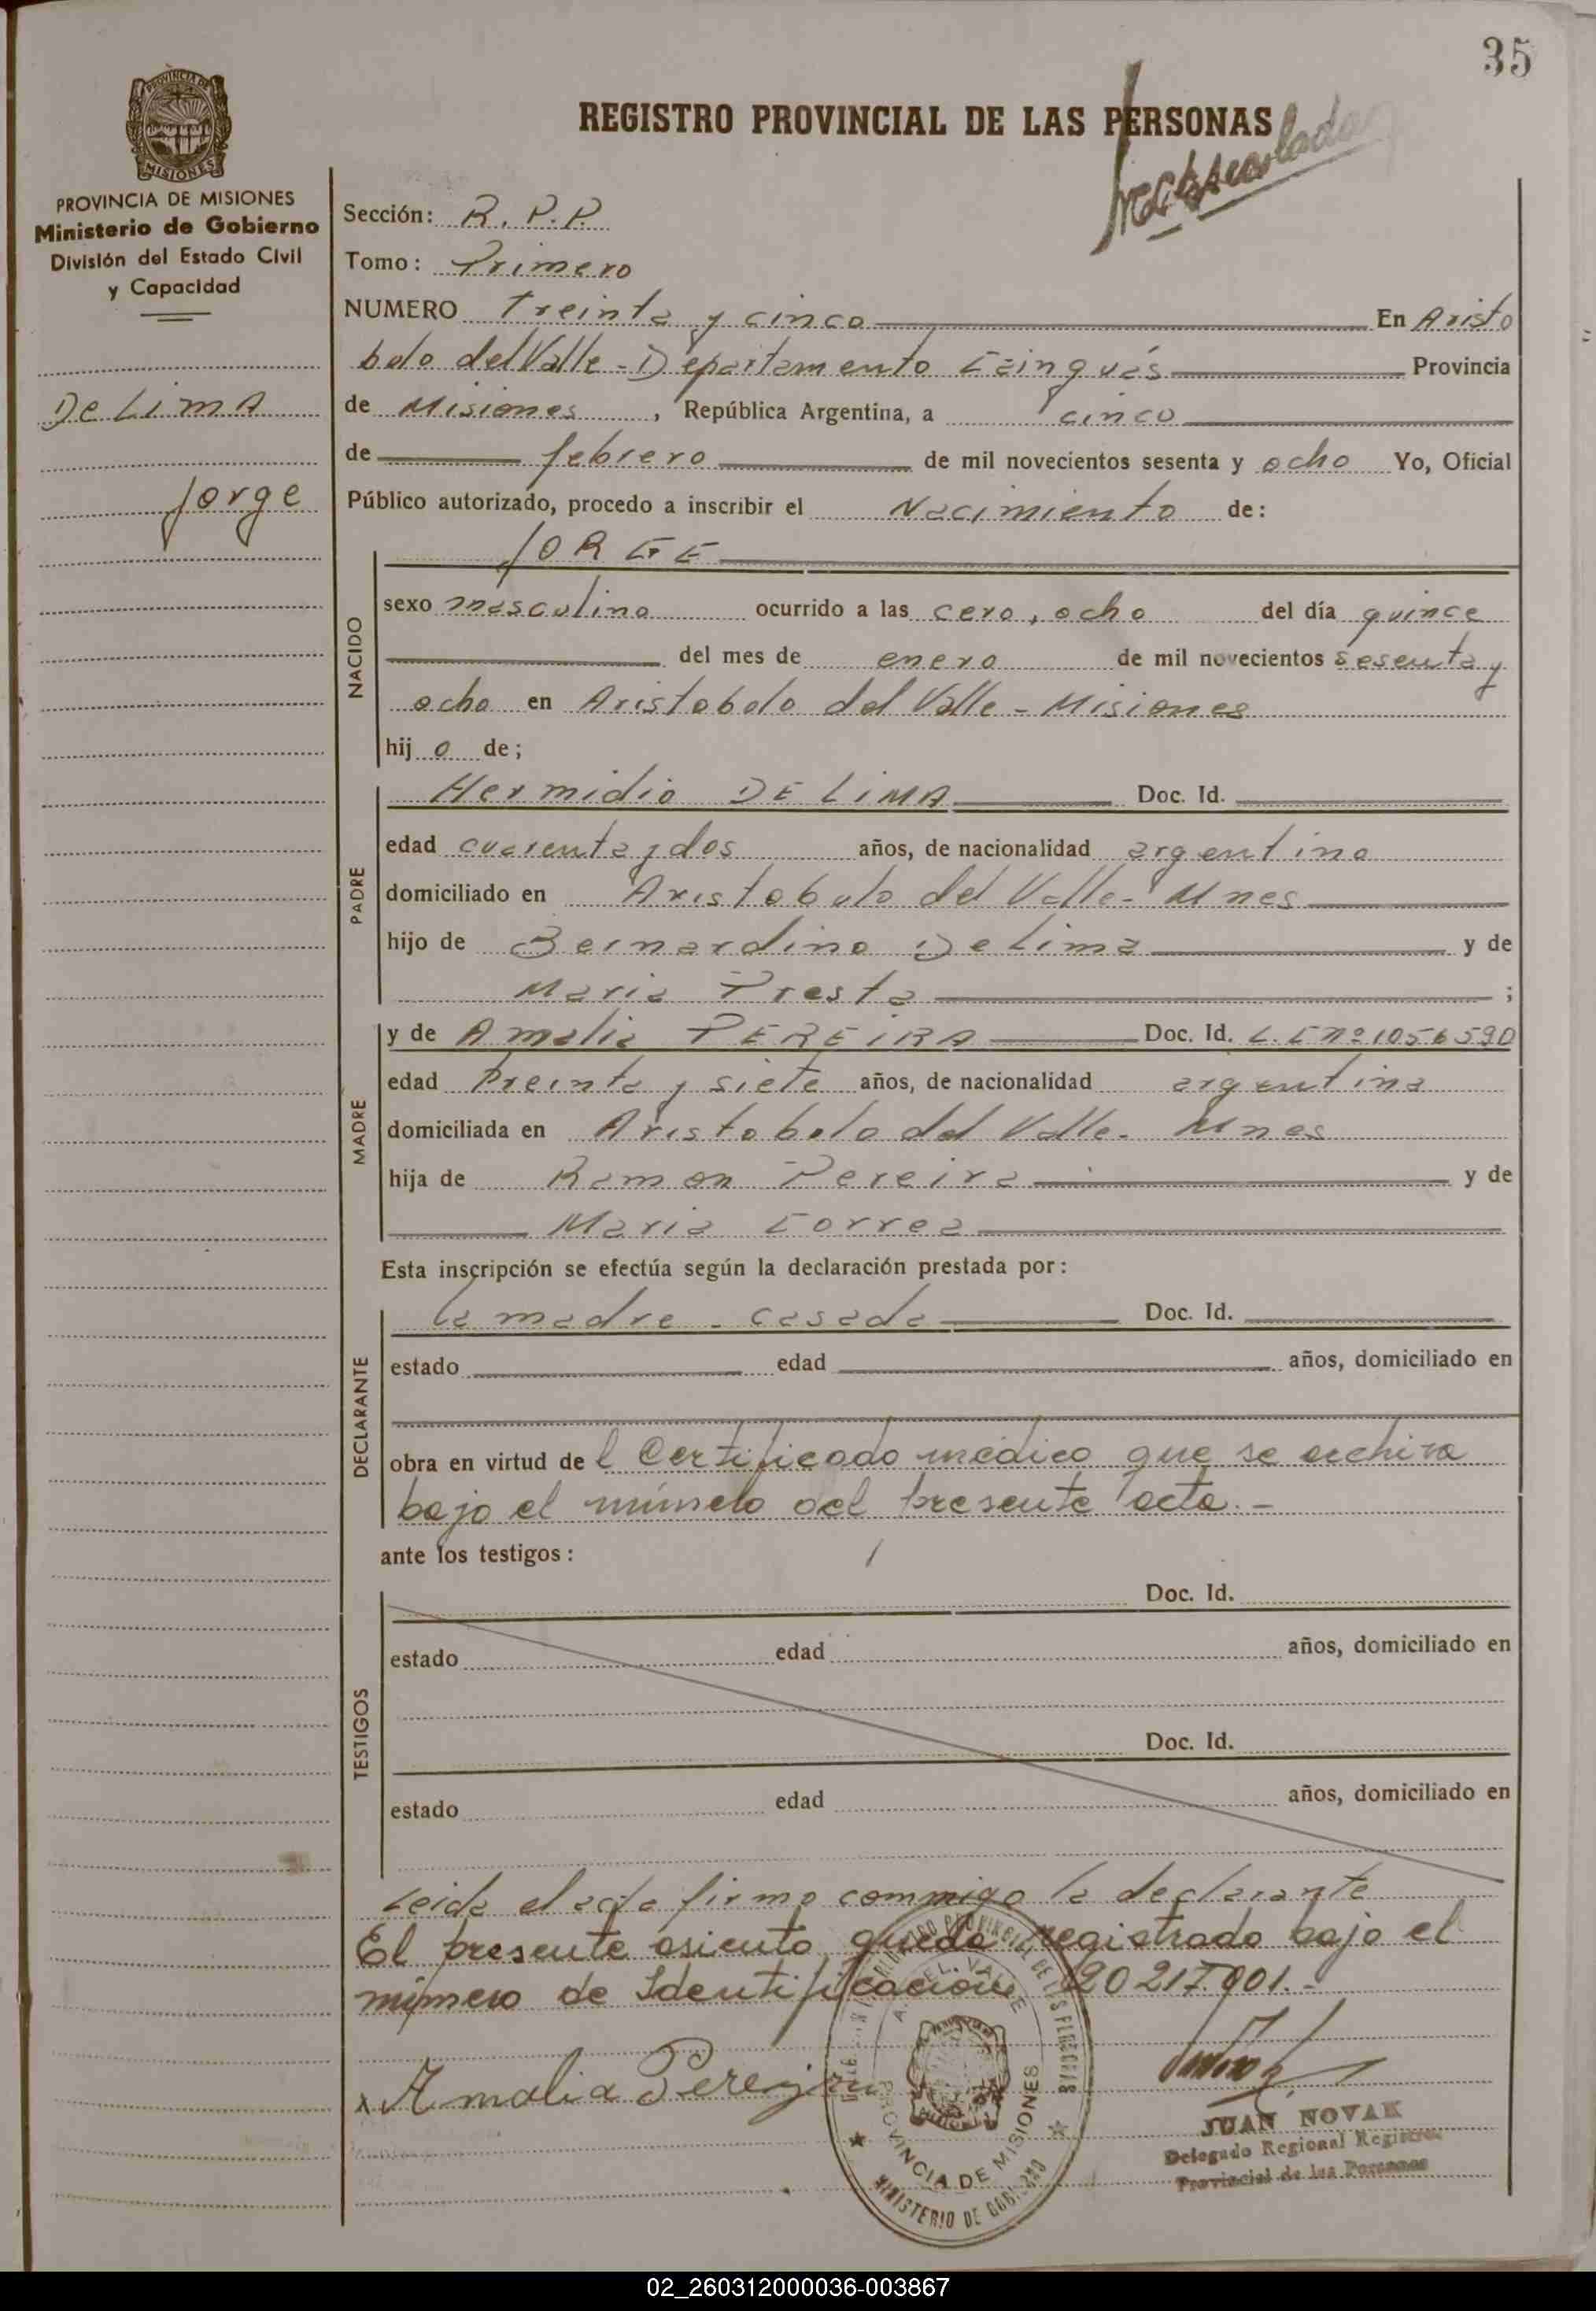 35
REGISTRO PROVINCIAL DE LAS PERSONAS
PROVINCIA DE MISIONES
Ministerio de Gobierno
División del Estado Civil
y Capacidad
De LimA
Jorge
Sección: R. P. P.
Tomo: Primero
NUMERO Treinta y cinco En Aristo
bolo del Valle - Departamento Cainguás Provincia
de Misiones, República Argentina, a cinco
de febrero de mil novecientos sesenta y ocho Yo, Oficial
Público autorizado, procedo a inscribir el Nacimiento de:
JORGE
NACIDO
sexo masculino ocurrido a las cero, ocho del día quince
del mes de enero de mil novecientos sesenta y
ocho en Aristobolo del Valle - Misiones
hij o de;
PADRE
Hermidio DE LiMA Doc. Id.
edad cuarenta y dos años, de nacionalidad argentino
domiciliado en Aristobulo del Valle - Mnes
hijo de Bernardino De Lima y de
Maria Presta ;
MADRE
y de Amalia PEREiRA Doc. Id. L.C nº 1056590
edad Treinta y siete años, de nacionalidad argentina
domiciliada en Aristobolo del Valle - Mnes
hija de Ramon Pereira y de
Maria Correa
Esta inscripción se efectúa según la declaración prestada por:
DECLARANTE
la madre - casada Doc. Id.
estado edad años, domiciliado en
obra en virtud de l Certificado médico que se archiva
bajo el número del presente acta.-
ante los testigos:
TESTIGOS
Doc. Id.
estado edad años, domiciliado en
Doc. Id.
estado edad años, domiciliado en
Leida el acta firma conmigo la declarante
El presente asiento queda registrado bajo el
número de Identificación 20217001.-
x Amalia Pereira
PROVINCIA DE MISIONES
MINISTERIO DE GOBIERNO
JUAN NOVAK
Delegado Regional Registro
Provincial de las Personas
02_260312000036-003867